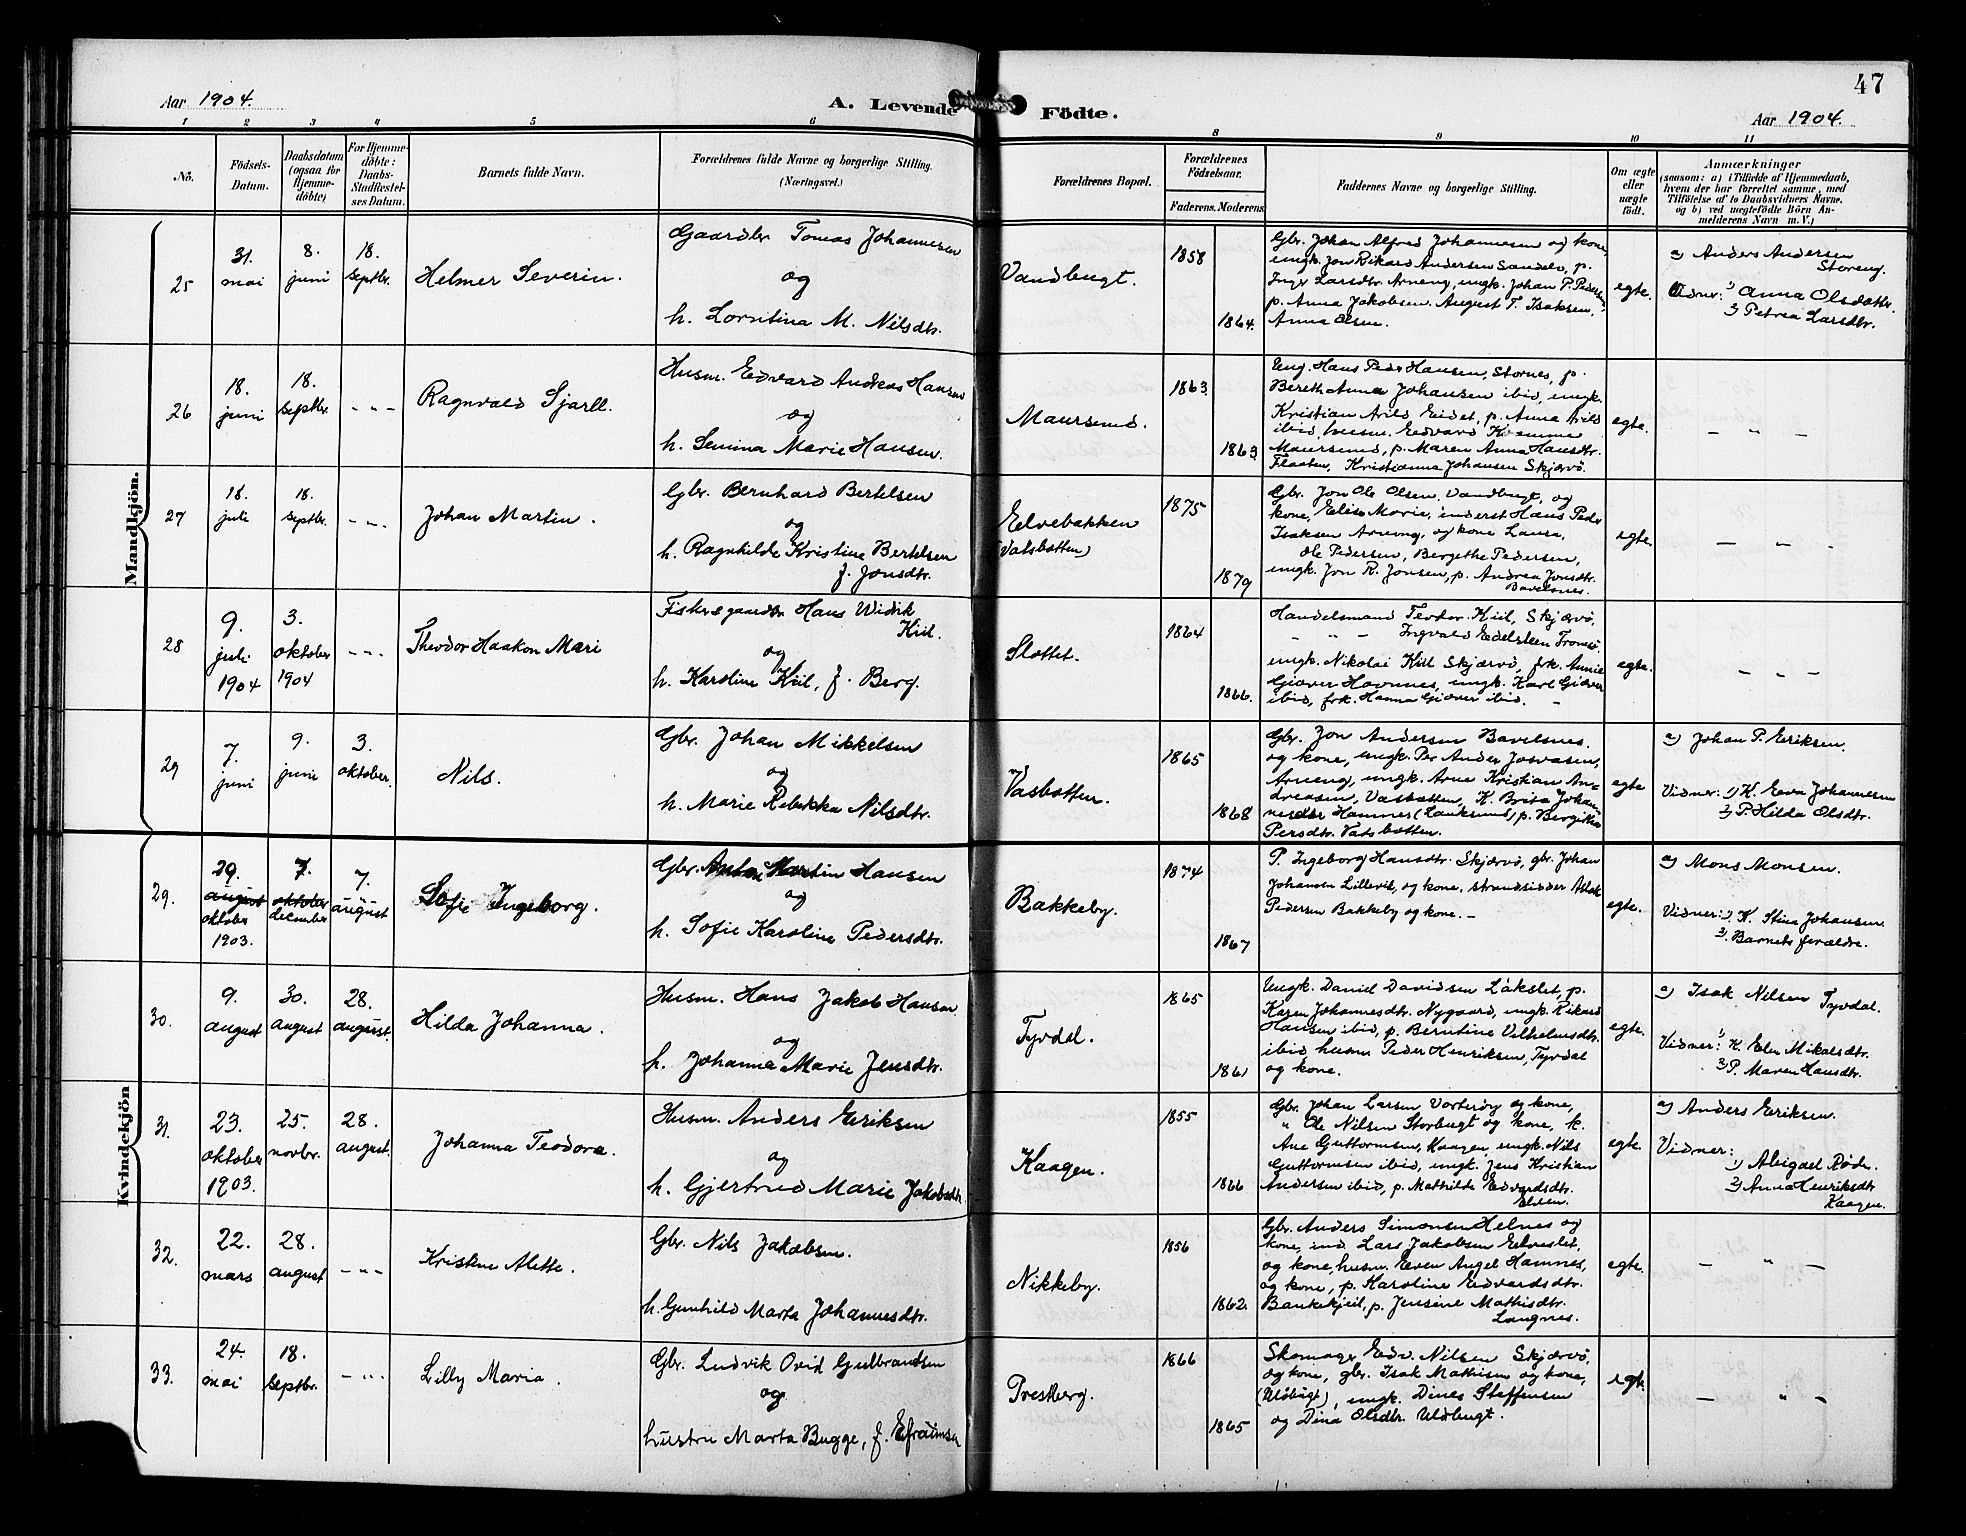 47
Aar 1904.
A. Levende Födte.
Aar 1904.
1 2 3 4 5 6 8 9 10 11
No.
Födsels-
Datum.
Daabsdatum
(ogsaa for
Hjemme-
döbte)
For Hjemme-
döbte:
Daabs-
Stadfæstel-
ses Datum.
Barnets fulde Navn.
Forældrenes fulde Navne og borgerlige Stilling.
(Næringsvei.)
Forældrenes Bopæl.
Forældrenes
Födselsaar.
Faderens. Moderens
Faddernes Navne og borgerlige Stilling.
Om ægte
eller
uægte
födt.
Anmærkninger
(saasom: a) i Tilfælde af Hjemmedaab,
hvem der har forrettet samme, med
Tilföielse af to Daabsvidners Navne.
og b) ved uægtefödte Börn An-
melderens Navn m. V.)
Mandkjön.
25
31.
mai
8.
juni
18.
septbr.
Helmer Severin.
Gaardbr. Tomas Johannesen
og
h. Lorntina M. Nilsdtr.
Vandbugt.
1858
1864.
Gbr. Johan Alfred Johannesen og kone,
umgk. Jon Rikard Andersen Sandelv, p.
Inger Larsdtr. Arneng, ungk. Johan P. Pedersen,
p. Anna Jakobsen. August T. Isaksen,
Anna Olsen.
egte.
a) Anders Andersen
Storeng.
Vidner: 1) Anna Olsdattr.
2) Petrea Larsdtr.
26
18.
juni
18.
septbr.
- " -
Ragnvald Sjarll.
Husm. Edvard Andreas Hansen
og
h. Semina Marie Hansen.
Maursund.
1863
1863.
Ung. Hans Peder Hansen, Stornes, p.
Bereth Anna Johansen ibid, ungk.
Kristian Arild Eidet, p. Anna Arild
ibid, husm. Edvard
Maursund, p. Maren Anna Hansdtr.
Flaaten, Kristianna Johansen Skjærvö.
egte.
- " -
27
16.
juli
18.
septbr.
- " -
Johan Martin.
Gbr. Bernhard Bertelsen
og
h. Ragnhilde Kristine Bertelsen
f. Jonsdtr.
Elvebakken
(Vatsbotten)
1875
1879
Gbr. Jon Ole Olsen, Vandbugt, og
kone, Elise Marie, inderst Hans Peder
Isaksen Arneng, og kone Laura,
Ole Pedersen, Bergethe Pedersen,
ungk. Jon R. Jonsen, p. Andrea Jonsdtr.
Bavelsnes.
egte.
- - -
28
9.
juli
1904
3.
oktober
1904
- " -
Theodor Haakon Mari
Fisker & gaardbr. Hans Widik
Kiil.
og
h. Karoline Kiil, f. Berg.
Slottet.
1864
1866.
Handelsmand Teodor Kiil, Skjærvö,
- " - Ingvald Edelsteen Tromsö,
ungk. Nikolai Kiil Skjærvö, frk. Annie
Giæver Havnnes, ungk. Karl Giæver
ibid, frk. Hanna Giæver ibid. -
egte.
- " -
29
7.
juni
9.
juni
3.
oktober.
Nils.
Gbr. Johan Mikkelsen
og
h. Marie Rebekka Nilsdtr.
Vasbotten.
1865
1868
Gbr. Jon Andersen Bavelsnes.
og kone, ungk. Per Ander Josvasen,
Arneng, ungk. Arne Kristian An-
dreasen, Vasbotten, K. Brita Johan-
nesdtr Hamnes (Lauksund) p. Bergitha
Persdtr. Vatsbotten.
egte
a) Johan P. Eriksen.
Vidner: 1) K. Eva Johannesen
2) P. Hilda Olsdtr.
Kvindekjön
29.
29.
august
oktober
1903.
7.
oktober
december
7.
august
Sofie Ingeborg.
Gbr. Anton Martin Hansen
og
h. Sofie Karoline Pedersdtr.
Bakkeby.
1874
1867
P. Ingeborg Hansdtr. Skjærvö, gbr. Johan
Johansen Lillevik, og kone, strandsidder Aslak
Pedersen Bakkeby og kone. -
egte.
a) Mons Monsen.
Vidner: 1) K. Stina Johansen.
2) Barnets forældre.
30.
9.
august
30.
august
28.
august.
Hilda Johanna.
Husm. Hans Jakob Hansen
og
h. Johanna Marie Jensdtr.
Tyvdal.
1865
1861
Ungk. Daniel Davidsen Lökslet, p.
Karen Johannesdtr. Nygaard, ungk. Rikard
Hansen ibid, p. Berntine Vilhelmsdtr.
ibid, husm. Peder Henriksen, Tyvdal
og kone.
egte.
a) Isak Nilsen Tyvdal.
Vidner: 1) K. Elen Mikalsdtr.
2) P. Maren Hansdtr.
31.
23.
oktober
1903.
25.
novbr.
28.
august.
Johanna Teodora.
Husm. Anders Eriksen
og
h. Gjertrud Marie Jakobsdtr
Kaagen.
1855
1866
Gbr. Johan Larsen Vorterøy og kone,
" Ole Nilsen Storbugt og kone, k.
Ane Guttormsen, Kaagen, ungk. Nils
Guttormsen ibid, ungk. Jens Kristian
Andersen ibid, p. Mathilde Edvardsdtr.
egte.
a) Anders Eriksen.
Vidner:
1) Abigael Røde.
2) Anna Henriksdtr
Kaagen.
32.
22.
mars
28.
august
- " -
Kristine Alette.
Gbr. Nils Jakobsen.
h. Gunhild Marta Johannesdtr.
Nikkeby.
1856
1862.
Gbr. Anders Simonsen Helnes og
kone, ind. Lars Jakobsen Elveslet,
og kone, husm. Even Angel Hamnes,
og kone, p. Karoline Edvardsdtr.
Bankekjeil, p. Jensine Mathisdtr.
Langnes.
egte.
- " -
33.
24.
mai
18.
septbr.
- " -
Lilly Maria.
Gbr. Ludvik Ovid Gulbrandsen
og
hustru Marta Bugge, f. Efraimsen
Prestberg.
1866
1865
Skomager Edv. Nilsen Skjærvö,
og kone, gbr. Isak Mathisen og kone,
(Uløbugt), ungk. Dines Steffensen
og Dina Olsdtr. Uløbugt.
egte.
- " -